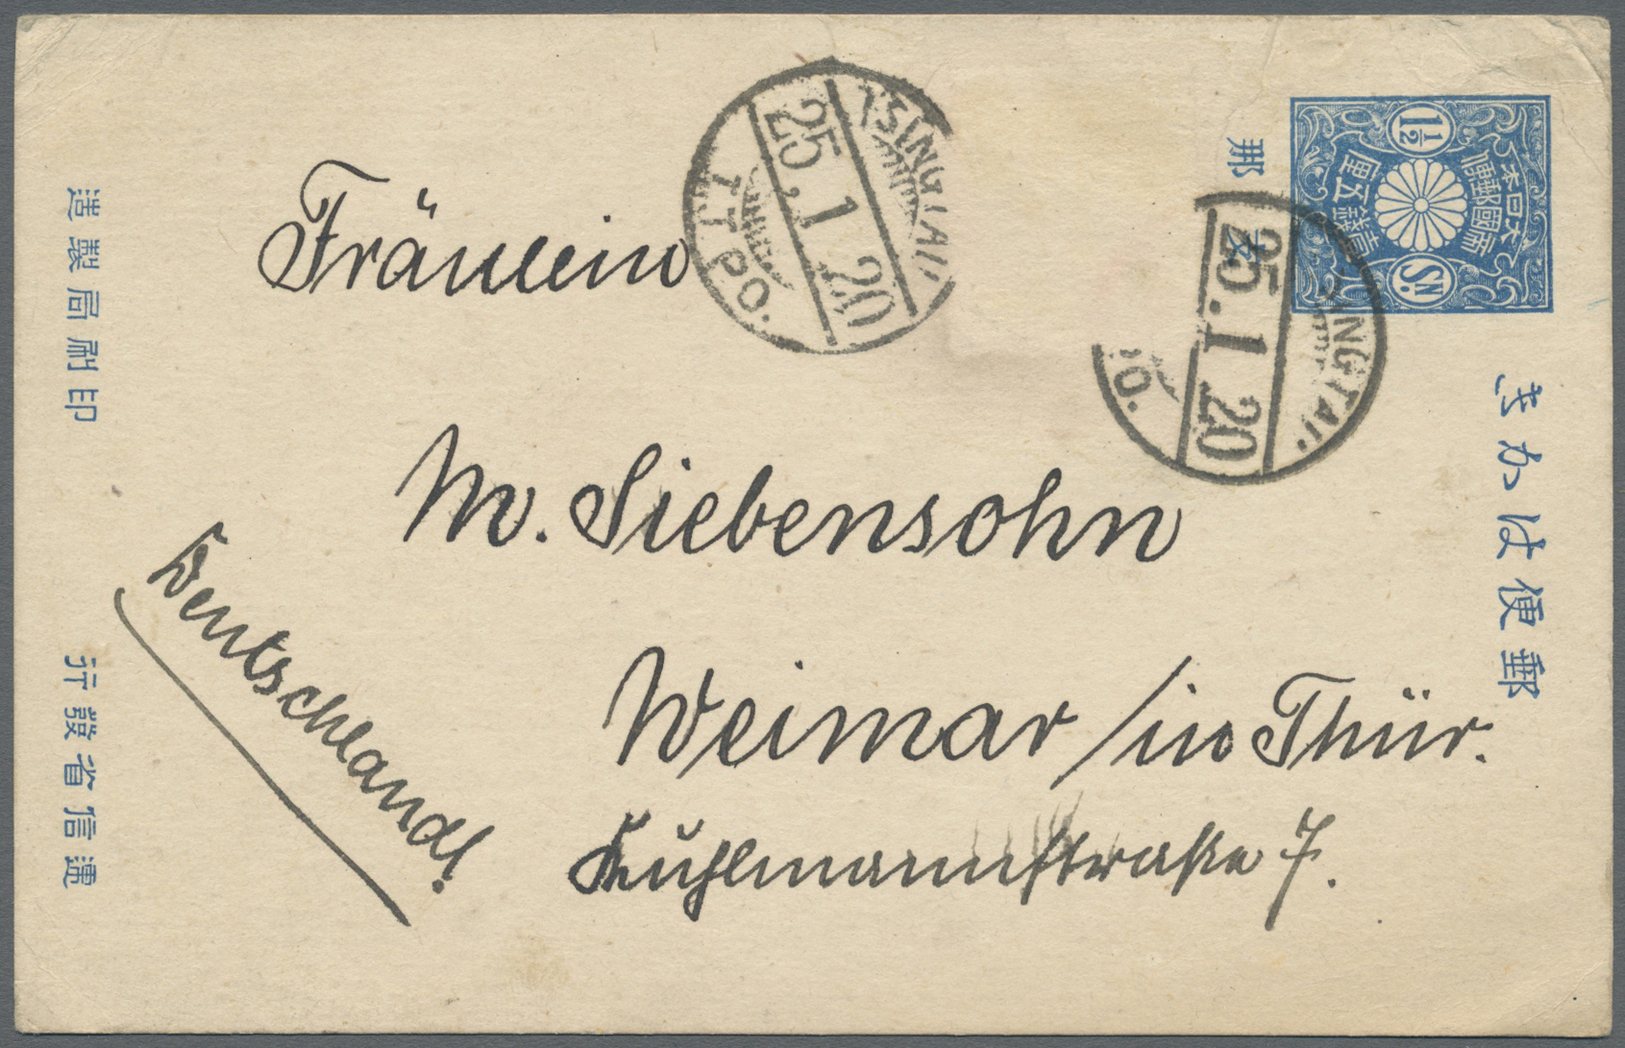 Fräulein
M. Siebensohn
Weimar / in Thür.
Kuhlmannstraße 7.
Deutschland!
TSINGTAU
25.1.20
I.J.P.O.
TSINGTAU
25.1.20
P.O.
1½
SN
大日本
帝國郵便
壹錢五厘
支那
郵便はかき
印刷局製造
遞信省發行